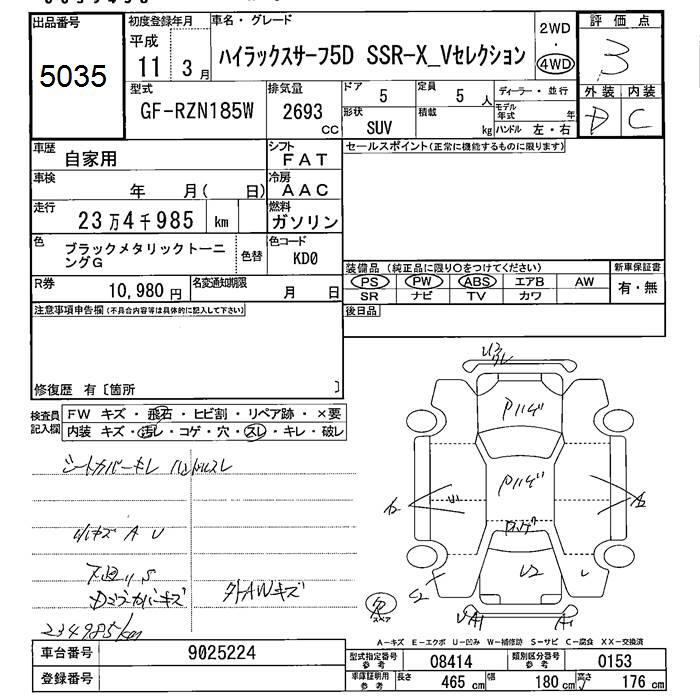 出品番号
5035
初度登録年月
平成
11 3月
車名・グレード
ハイラックスサーフ5D SSR-X_Vセレクション
2WD
・
4WD
評価点
3
外装 内装
D C
型式
GF-RZN185W
排気量
2693
cc
ドア
5
定員
5 人
ディーラー・並行
形状
SUV
積載
kg
モデル
年式 年
ハンドル 左・右
車歴
自家用
シフト
FAT
セールスポイント(正常に機能するものに限ります)
車検
年 月( 日)
冷房
AAC
走行
23万4千985 km
燃料
ガソリン
色
ブラックメタリックトーニ
ングG
色替
色コード
KD0
装備品 (純正品に限り○をつけてください)
新車保証書
PS PW ABS エアB AW
SR ナビ TV カワ
有・無
R券
10,980円
名変通知期限
月 日
後日品
注意事項申告欄(不具合内容等は具体的に記入して下さい)
修復歴 有〔箇所 〕
検査員
記入欄
FW キズ・飛石・ヒビ割・リペア跡・×要
内装 キズ・汚レ・コゲ・穴・スレ・キレ・破レ
シートカバーキレ ハンドルスレ
小キズ A U
外AWキズ
234985km
Pハゲ
Pハゲ
Pハゲ
U2
S2
UA1
A1
スペア
A-キズ E-エクボ U-凹み W-補修跡 S-サビ C-腐食 XX-交換済
車台番号
9025224
登録番号
型式指定番号
参考
08414
類別区分番号
参考
0153
車庫証明用
参考
長さ 465 cm
幅 180 cm
高さ 176 cm